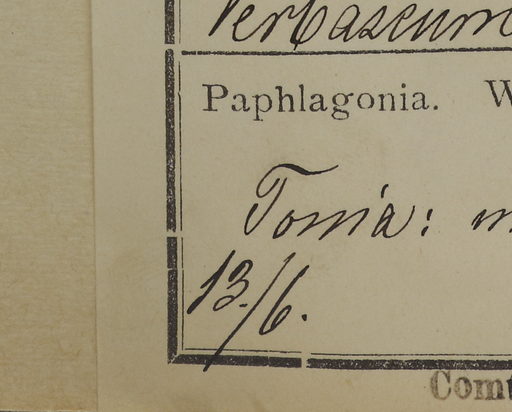 Verbascum
Paphlagonia. W
Tossia: m
13/6.
Comt